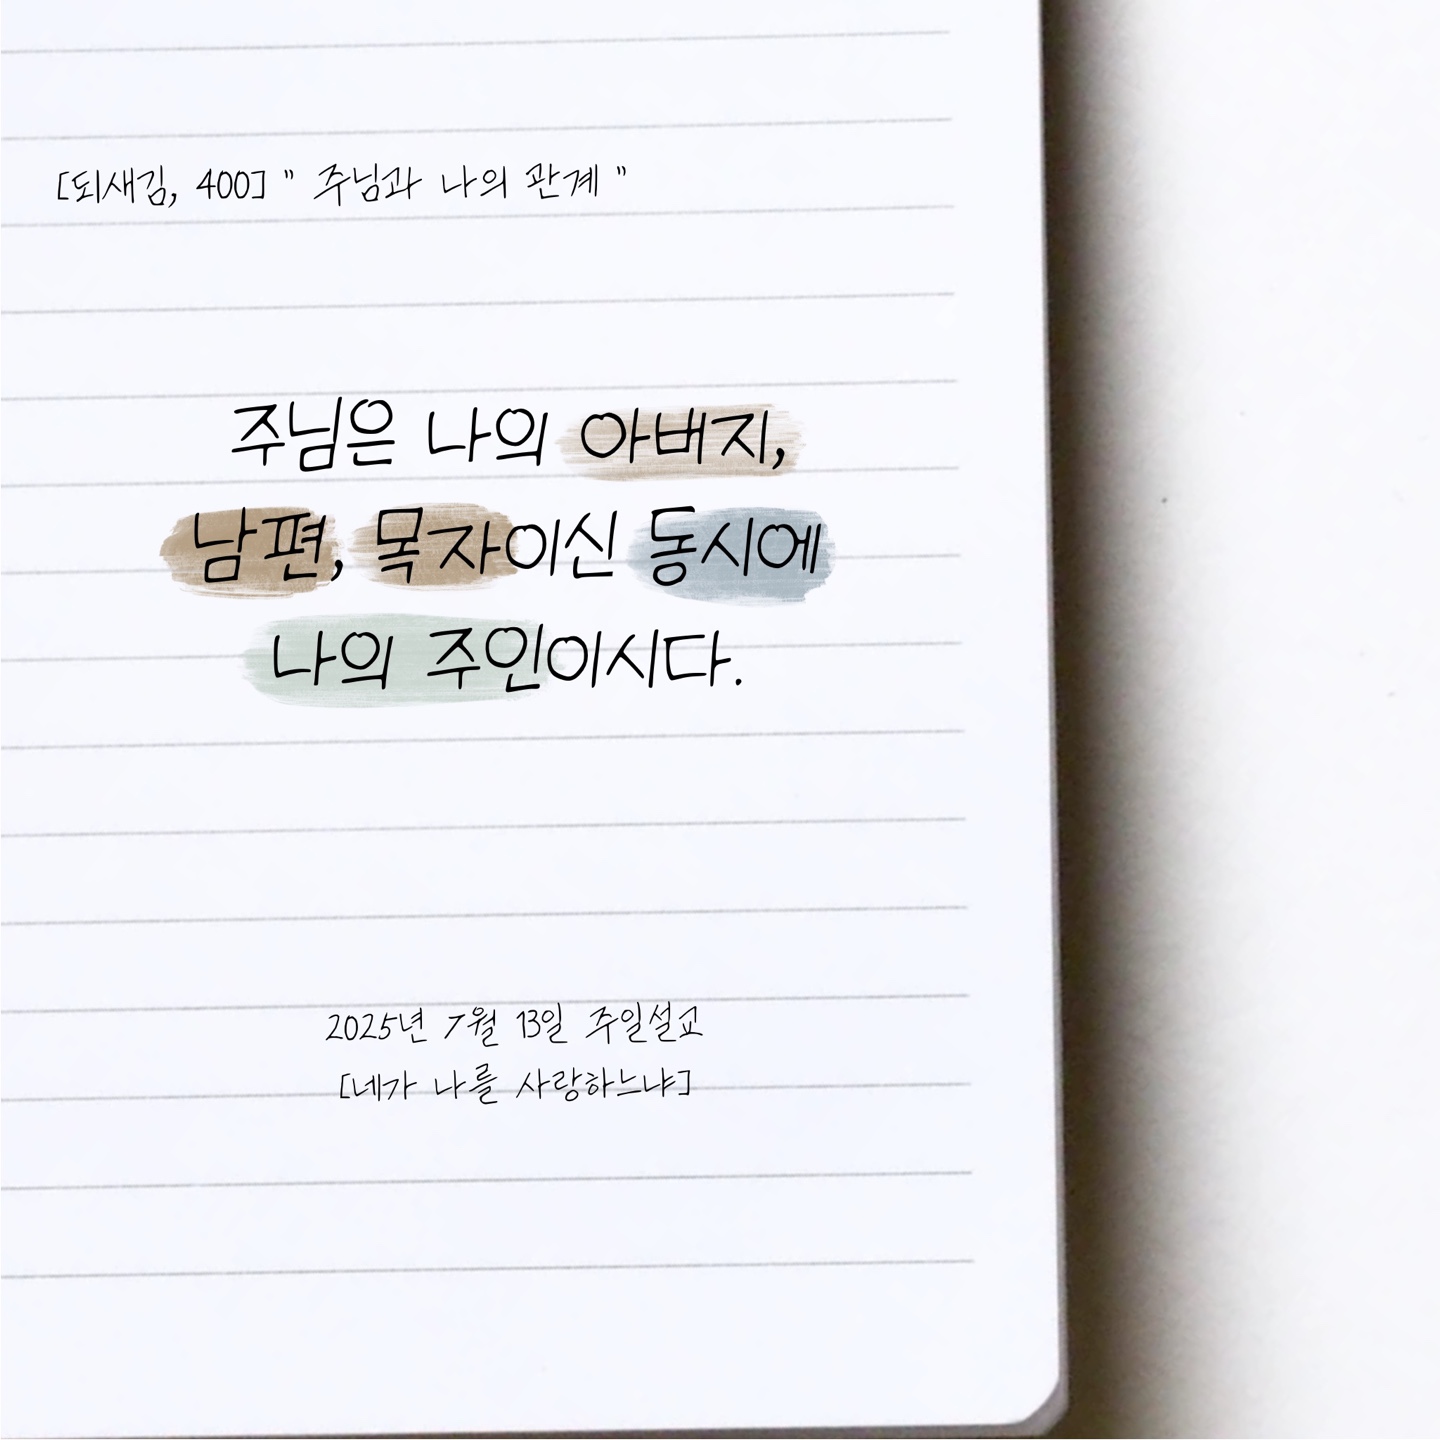 [되새김, 400] " 주님과 나의 관계 "
주님은 나의 아버지,
남편, 목자이신 동시에
나의 주인이시다.
2025년 7월 13일 주일설교
[네가 나를 사랑하느냐]